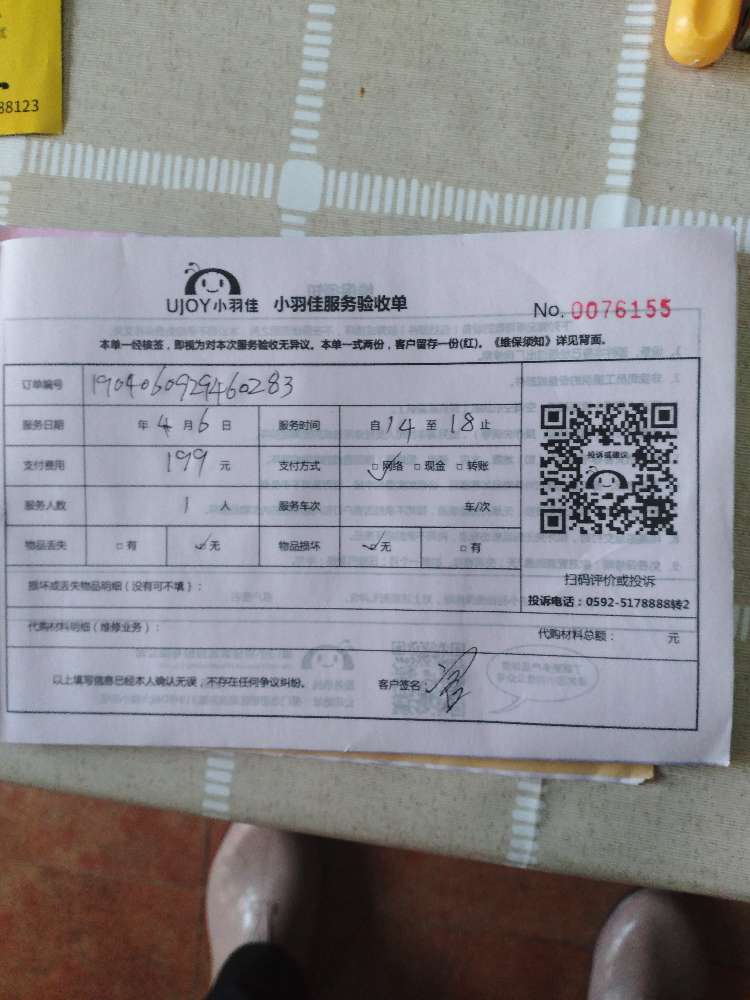 88123
UJOY小羽佳 小羽佳服务验收单
No. 0076155
本单一经核签，即视为对本次服务验收无异议。本单一式两份，客户留存一份(红)。《维保须知》详见背面。
订单编号 1904060929460283
服务日期 年 4 月 6 日 服务时间 自 14 至 18 止
支付费用 199 元 支付方式 ☑ 网络 □ 现金 □ 转账
投诉或建议
服务人数 1 人 服务车次 车/次
物品丢失 □ 有 ☑ 无 物品损坏 ☑ 无 □ 有
扫码评价或投诉
投诉电话：0592-5178888转2
损坏或丢失物品明细（没有可不填）：
代购材料明细（维修业务）： 代购材料总额： 元
以上填写信息已经本人确认无误，不存在任何争议纠纷。 客户签名：